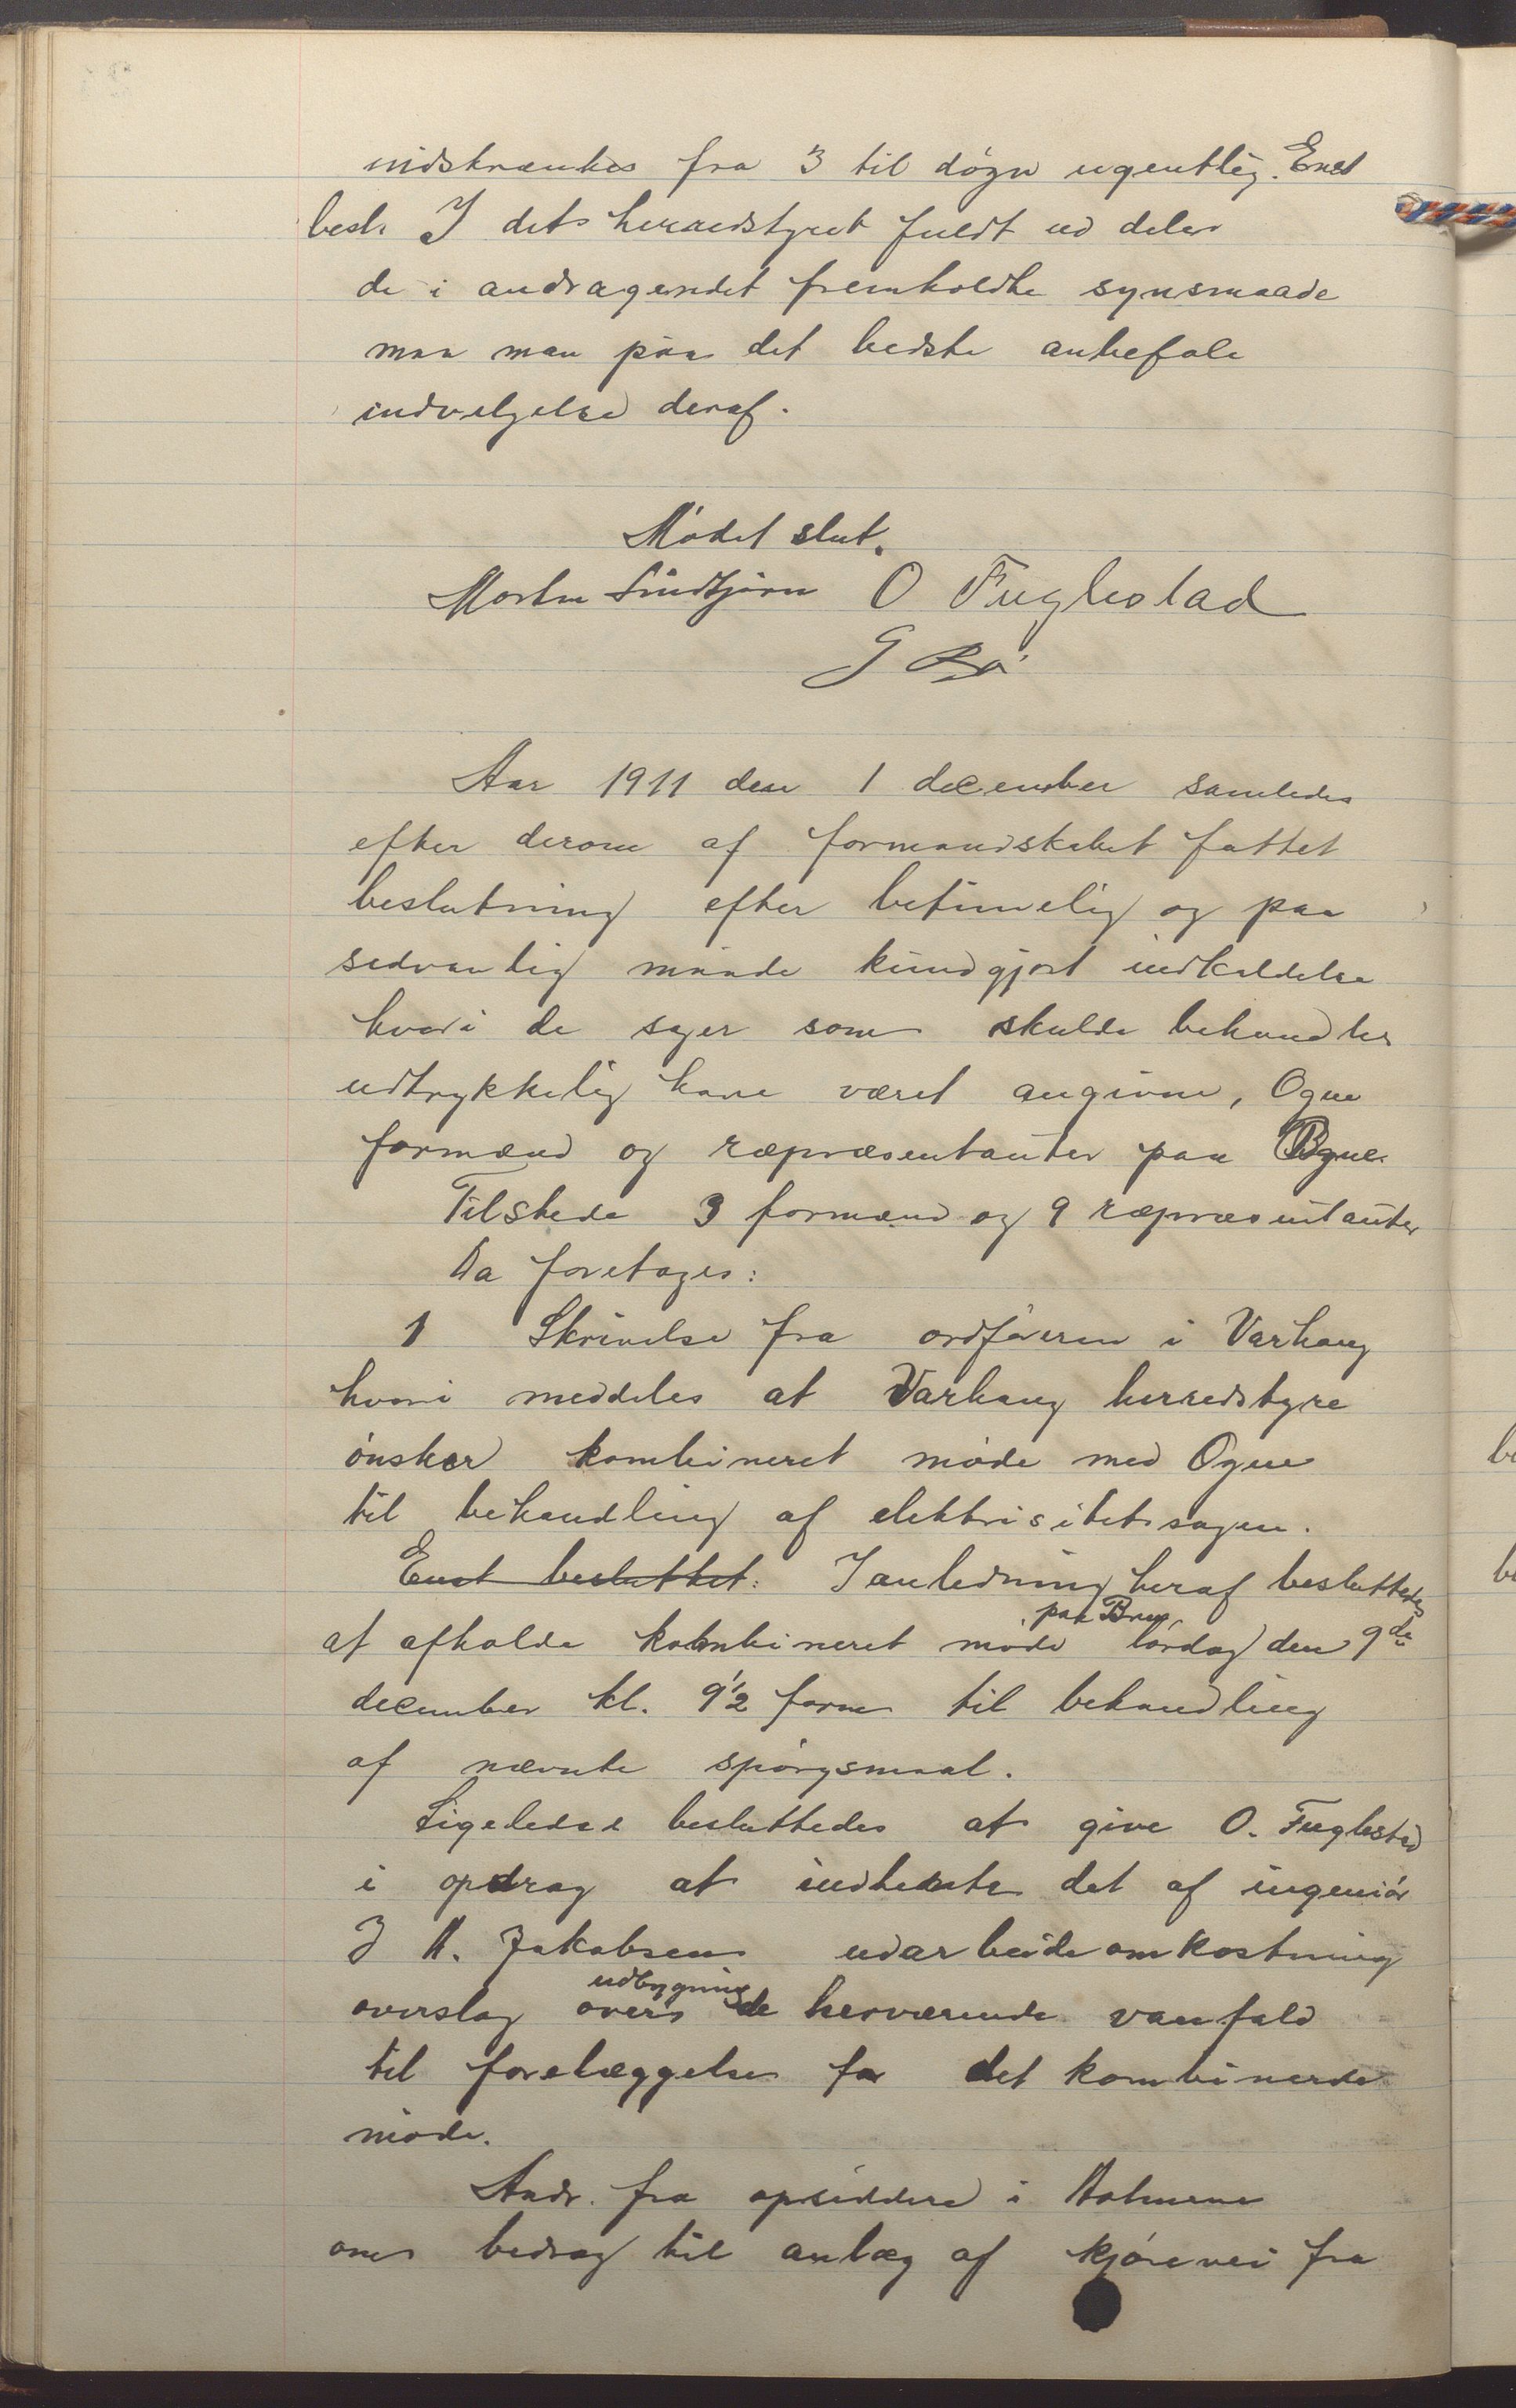 indskrænkes fra 3 til døgn ugentlig. Enst
besl. I det herredstyret fuldt ud deler
de i andragendet fremholdte synsmaade
maa man paa det bedste anbefale
indvelgelse deraf.
Mødet slut.
Morten Lindtjørn O Fuglestad
G Bø
Aar 1911 den 1 december samledes
efter derom af formandskabet fattet
beslutning efter betimelig og paa
sedvanlig maade kundgjort indkaldelse
hvori de sager som skulde behandles
udtrykkelig have været angivne, Ogne
formænd og repræsentanter paa
Tilstede 3 formænd og 9 repræsentanter
Da foretages:
1 Skrivelse fra ordføreren i Varhaug
hvori meddeles at Varhaug herredstyre
ønsker kombineret møde med Ogne
til behandling af elektrisitetsagen.
Enst besluttet: I anledning heraf besluttedes
paa Brue
at afholde kombineret møde lørdag den 9de
december kl. 9½ form til behandling
af nævnte spørgsmaal.
Ligeledes besluttedes at give O. Fuglestad
i opdrag at indhente det af ingeniør
J A. Jakobsen udarbeide omkostning
udbygning
overslag over de herværende vanfald
til forelæggelse for det kombinerde
møde.
Andr. fra opsiddere i Holmene
om bedrag til anlæg af kjørevei fra